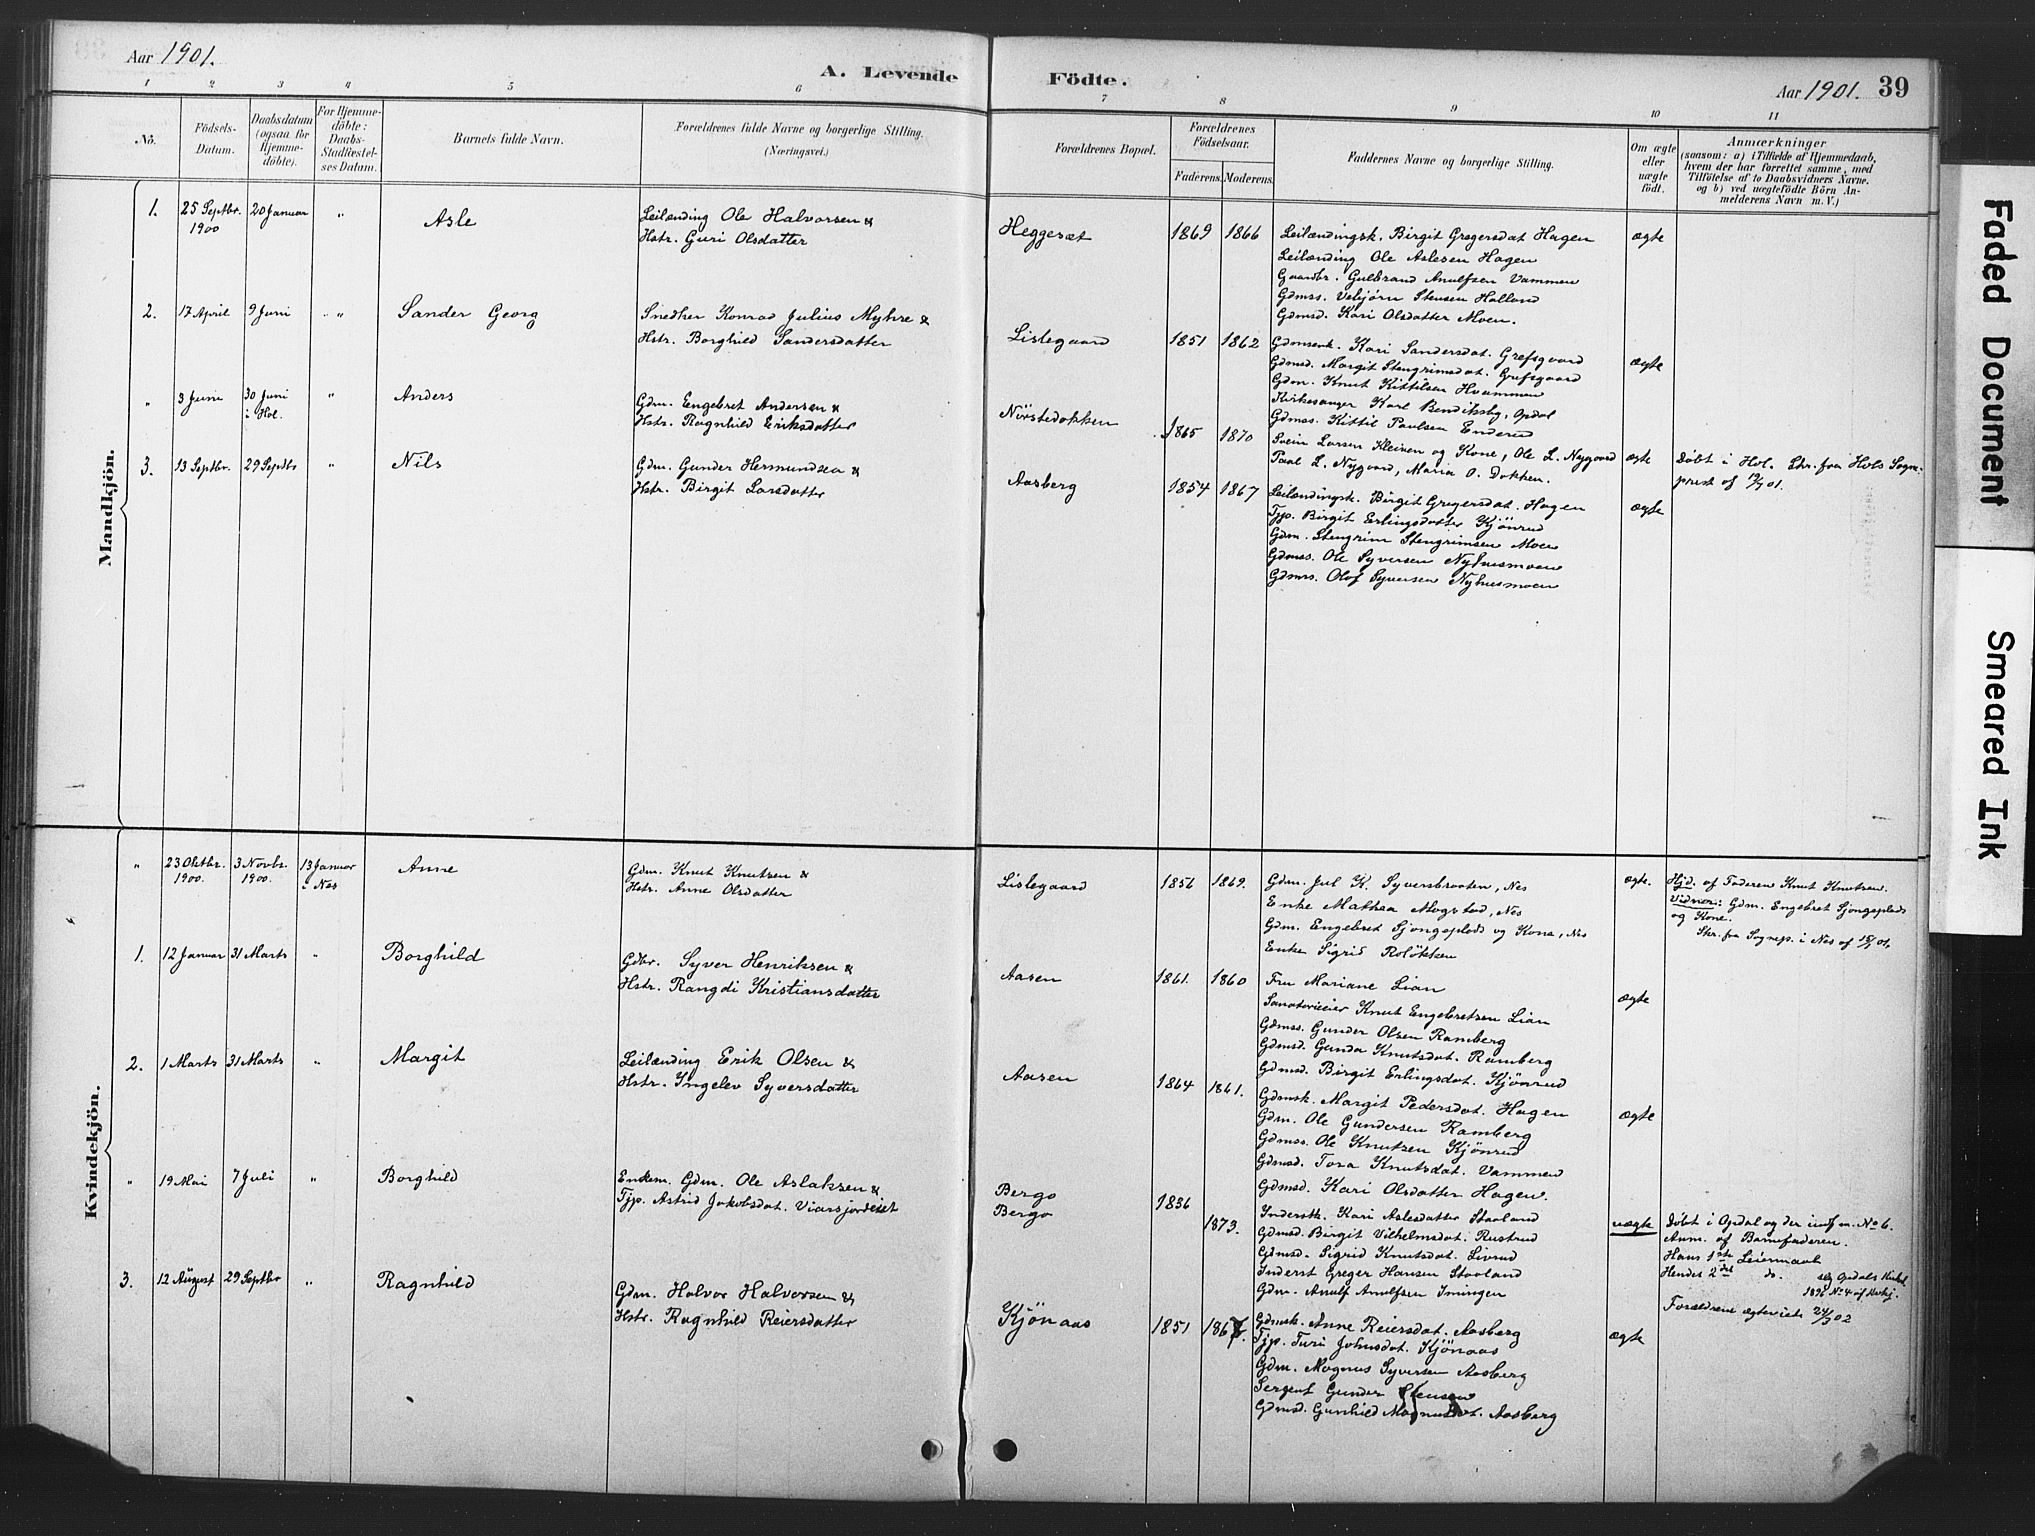 Aar 1901.
A. Levende
Födte.
Aar 1901. 39
1 2 3 4 5 6 7 8 9 10 11
No.
Födsels-
Datum.
Daabsdatum
(ogsaa for
Hjemme-
döbte).
For Hjemme-
döbte:
Daabs-
Stadfæstel-
ses Datum.
Barnets fulde Navn.
Forældrenes fulde Navne og borgerlige Stilling.
(Næringsvei.)
Forældrenes Bopæl.
Forældrenes
Födselsaar.
Faderens. Moderens.
Faddernes Navne og borgerlige Stilling.
Om ægte
eller
uægte
födt.
Anmærkninger
(saasom: a) i Tilfælde af Hjemmedaab,
hvem der har forrettet samme, med
Tilföielse af to Daabsvidners Navne.
og b) ved uægtefödte Börn An-
melderens Navn m. V.)
Mandkjön.
1. 25 Septbr. 1900 20 Januar " Asle
Leilænding Ole Halvorsen &
Hstr. Guri Olsdatter
Heggeset 1869 1866
Leilændingsk. Birgit Gregersdat Hagen
Leilænding Ole Aslesen Hagen
Gaardbr. Gulbrand Arnulfsen Vammen
Gdmss. Vebjørn Stensen Halland
Gdmsd. Kari Olsdatter Moen.
ægte
2. 17 April 9 Juni " Sander Georg
Snedker Konrad Julius Myhre &
Hstr. Borghild Sandersdatter
Lislegaard 1851 1862
Gdmsenk. Kari Sandersdat. Grefsgaard
Gdmsd. Margit Stengrimsdat. Grefsgaard
Gdm. Knut Kittilsen Hvammen
Kirkesanger Karl Bendiksby, Opdal
Gdmss. Kittil Paulsen Enderud
ægte
" 3 Juni 30 Juni i Hol. " Anders
Gdm. Engebret Andersen &
Hstr. Ragnhild Eriksdatter
Nørstedokken 1865 1870
Svein Larsen Kleiven og Kone, Ole L. Nygaard
Paal L. Nygaard, Maria O. Dokken.
ægte
Døbt i Hol. Skr. fra Hols Sogne-
prest af 12/7 01.
3. 13 Septbr. 29 Septbr " Nils
Gdm. Gunder Hermundsen &
Hstr. Birgit Larsdatter
Aasberg 1854 1867
Leilændingsk. Birgit Gregersdat. Hagen
Tjp. Birgit Erlingsdatter Kjönrud
Gdm. Stengrim Stengrimsen Moen
Gdmss. Ole Syversen Nyhusmoen
Gdmss. Olof Syversen Nyhusmoen
ægte
Kvindekjön.
" 23 Oktbr. 1900. 3 Novbr. 1900. 13 Januar i Nes Anne
Gdm. Knut Knutsen &
Hstr. Anne Olsdatter
Lislegaard 1856 1869.
Gdm. Jul K. Syversbraaten, Nes
Enke Mathea Mogstad, Nes
Gdm. Engebret Sjongsplads og Kone, Nes
Enke Sigrid Roløkken
ægte.
Hjd. af Faderen Knut Knutsen.
Vidner: Gdm. Engebret Sjongsplads
og Kone.
Skr. fra Sognep. i Nes af 15/1 01.
1. 12 Januar 31 Marts " Borghild
Gdbr. Syver Henriksen &
Hstr. Rangdi Kristiansdatter
Aasen 1861. 1860
Fru Mariane Lian
Sanatorieeier Knut Engebretsen Lian
Gdmss. Gunder Olsen Ramberg
Gdmsd. Gunda Knutsdat. Ramberg
Gdmsd. Birgit Erlingsdat. Kjönrud
ægte
2. 1 Marts 31 Marts " Margit
Leilænding Erik Olsen &
Hstr. Ingelev Syversdatter
Aasen 1864 1861.
Gdmsk. Margit Pedersdat. Hagen
Gdm. Ole Gundersen Ramberg
Gdmss. Ole Knutsen Kjönrud
Gdmsd. Tora Knutsdat. Vammen
Gdmsd. Kari Olsdatter Hagen.
ægte
" 19 Mai 7 Juli " Borghild
Enkem. Gdm. Ole Aslaksen &
Tjp. Astrid Jakobsdat. Viarsjordeiet
Bergo
Bergo
1836
1873.
Inderstk. Kari Aslesdatter Staaland
Gdmsd. Birgit Vilhelmsdat. Rustrud
Gdmsd. Sigrid Knutsdat. Livrud
Inderst Greger Hansen Staaland
Gdm. Arnulf Arnulfsen Imingen
uægte
Døbt i Opdal og der indf. m. No 6.
Anm. af Barnefaderen.
Hans 1ste Leiermaal
Hendes 2det do.
Forældrene ægteviede 24/3 02
3. 12 August 29 Septbr " Ragnhild
Gdm. Halvor Halvorsen &
Hstr. Ragnhild Reiersdatter
Kjönaas 1851 1867.
Gdmsk. Anne Reiersdat. Aasberg
Tjp. Turi Johnsdat. Kjönaas
Gdm. Magnus Syversen Aasberg
Sergent Gunder Stensen
Gdmsd. Gunhild Magnusdat. Aasberg
ægte
Faded Document
Smeared Ink